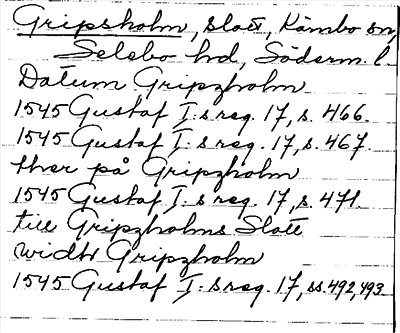 Gripsholm, slott, Kärnbo sn,
Selebo hd, Söderm. l.
Datum Gripzholm
1545 Gustaf I:s reg. 17, s. 466.
1545 Gustaf I:s reg. 17, s. 467.
ther på Gripzholm
1545 Gustaf I:s reg. 17, s. 471.
till Gripzholms Slott
widh Gripzholm
1545 Gustaf I:s reg. 17, ss. 492, 493.